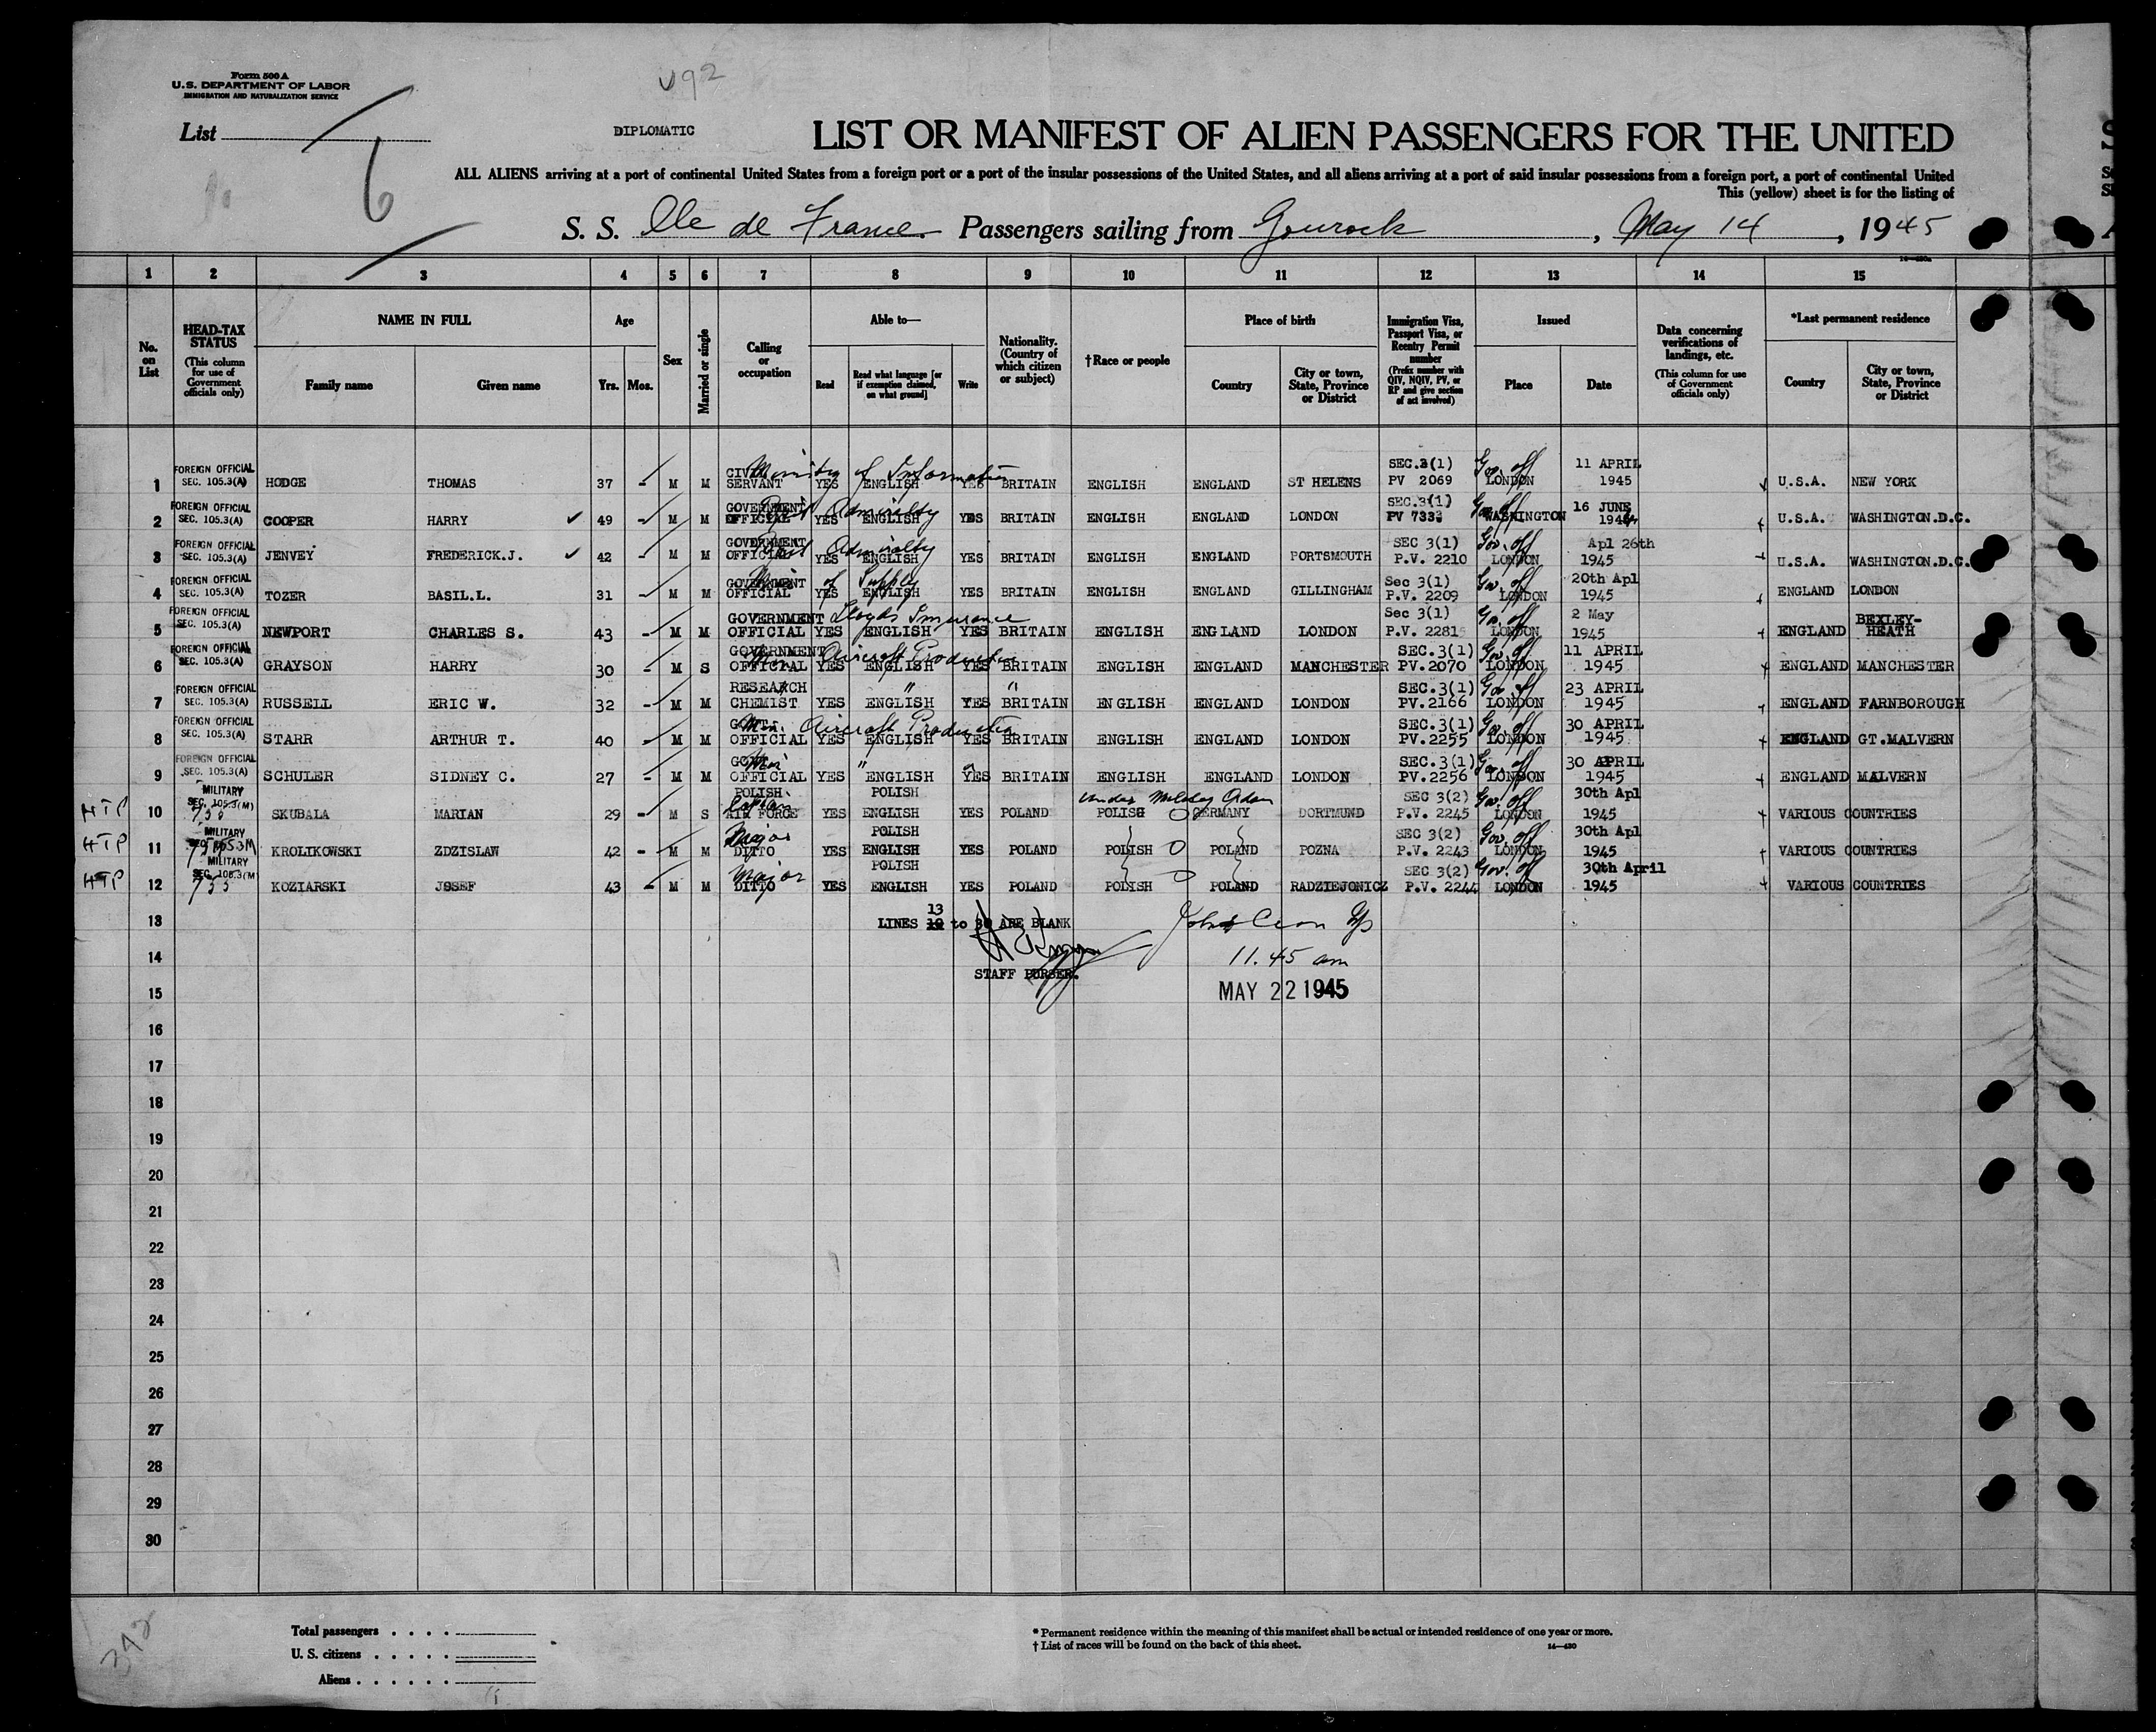 Form 500 A
U.S. DEPARTMENT OF LABOR
IMMIGRATION AND NATURALIZATION SERVICE
List 6
DIPLOMATIC
LIST OR MANIFEST OF ALIEN PASSENGERS FOR THE UNITED
ALL ALIENS arriving at a port of continental United States from a foreign port or a port of the insular possessions of the United States, and all aliens arriving at a port of said insular possessions from a foreign port, a port of continental United
This (yellow) sheet is for the listing of
S. S. Ile de France Passengers sailing from Gourock, May 14, 1945
1 2 3 4 5 6 7 8 9 10 11 12 13 14 15
No. on List
HEAD-TAX STATUS (This column for use of Government officials only)
NAME IN FULL Family name Given name
Age Yrs. Mos.
Sex
Married or single
Calling or occupation
Able to— Read Read what language [or if exemption claimed, on what ground] Write
Nationality. (Country of which citizen or subject)
†Race or people
Place of birth Country City or town, State, Province or District
Immigration Visa, Passport Visa, or Reentry Permit number (Prefix number with QIV, NQIV, PV, or RP and give section of act involved)
Issued Place Date
Data concerning verifications of landings, etc. (This column for use of Government officials only)
*Last permanent residence Country City or town, State, Province or District
1 FOREIGN OFFICIAL SEC. 105.3(A) HODGE THOMAS 37 - M M CIVIL SERVANT Ministry of Information YES ENGLISH YES BRITAIN ENGLISH ENGLAND ST HELENS SEC.3(1) PV 2069 Gov. off LONDON 11 APRIL 1945 U.S.A. NEW YORK
2 FOREIGN OFFICIAL SEC. 105.3(A) COOPER HARRY 49 - M M GOVERNMENT OFFICIAL Admiralty YES ENGLISH YES BRITAIN ENGLISH ENGLAND LONDON SEC.3(1) PV 7333 Gov. off WASHINGTON 16 JUNE 1944 U.S.A. WASHINGTON.D.C.
3 FOREIGN OFFICIAL SEC. 105.3(A) JENVEY FREDERICK.J. 42 - M M GOVERNMENT OFFICIAL Admiralty YES ENGLISH YES BRITAIN ENGLISH ENGLAND PORTSMOUTH SEC 3(1) P.V. 2210 Gov. off LONDON Apl 26th 1945 U.S.A. WASHINGTON.D.C.
4 FOREIGN OFFICIAL SEC. 105.3(A) TOZER BASIL.L. 31 - M M GOVERNMENT OFFICIAL Min of Supply YES ENGLISH YES BRITAIN ENGLISH ENGLAND GILLINGHAM Sec 3(1) P.V. 2209 Gov. off LONDON 20th Apl 1945 ENGLAND LONDON
5 FOREIGN OFFICIAL SEC. 105.3(A) NEWPORT CHARLES S. 43 - M M GOVERNMENT OFFICIAL Lloyds Insurance YES ENGLISH YES BRITAIN ENGLISH ENGLAND LONDON Sec 3(1) P.V. 2281 Gov. off LONDON 2 May 1945 ENGLAND BEXLEY-HEATH
6 FOREIGN OFFICIAL SEC. 105.3(A) GRAYSON HARRY 30 - M S GOVERNMENT OFFICIAL Min. Aircraft Production YES ENGLISH YES BRITAIN ENGLISH ENGLAND MANCHESTER SEC.3(1) PV.2070 Gov. off LONDON 11 APRIL 1945 ENGLAND MANCHESTER
7 FOREIGN OFFICIAL SEC. 105.3(A) RUSSELL ERIC W. 32 - M M RESEARCH CHEMIST " " YES ENGLISH YES BRITAIN ENGLISH ENGLAND LONDON SEC.3(1) PV.2166 Gov. off LONDON 23 APRIL 1945 ENGLAND FARNBOROUGH
8 FOREIGN OFFICIAL SEC. 105.3(A) STARR ARTHUR T. 40 - M M GOVT. OFFICIAL Min. Aircraft Production YES ENGLISH YES BRITAIN ENGLISH ENGLAND LONDON SEC.3(1) PV.2255 Gov. off LONDON 30 APRIL 1945 ENGLAND GT.MALVERN
9 FOREIGN OFFICIAL SEC. 105.3(A) SCHULER SIDNEY C. 27 - M M GOVT. OFFICIAL Min " " YES ENGLISH YES BRITAIN ENGLISH ENGLAND LONDON SEC.3(1) PV.2256 Gov. off LONDON 30 APRIL 1945 ENGLAND MALVERN
HTP 10 MILITARY SEC. 105.3(M) SKUBALA MARIAN 29 - M S POLISH AIR FORCE Captain YES POLISH ENGLISH YES POLAND under Military Orders POLISH GERMANY DORTMUND SEC 3(2) P.V. 2245 Gov. off LONDON 30th Apl 1945 VARIOUS COUNTRIES
HTP 11 MILITARY KROLIKOWSKI ZDZISLAW 42 - M M Major DITTO YES POLISH ENGLISH YES POLAND POLISH POLAND POZNA SEC 3(2) P.V. 2243 Gov. off LONDON 30th Apl 1945 VARIOUS COUNTRIES
HTP 12 MILITARY SEC. 105.3(M) KOZIARSKI JOSEF 43 - M M Major DITTO YES POLISH ENGLISH YES POLAND POLISH POLAND RADZIEJONICZ SEC 3(2) P.V. 2244 Gov. off LONDON 30th April 1945 VARIOUS COUNTRIES
13 LINES 13 to 30 ARE BLANK
14 11.45 am
STAFF PURSER.
15 MAY 22 1945
16
17
18
19
20
21
22
23
24
25
26
27
28
29
30
Total passengers . . . .
U. S. citizens . . . . .
Aliens . . . . . .
* Permanent residence within the meaning of this manifest shall be actual or intended residence of one year or more.
† List of races will be found on the back of this sheet.
14—430